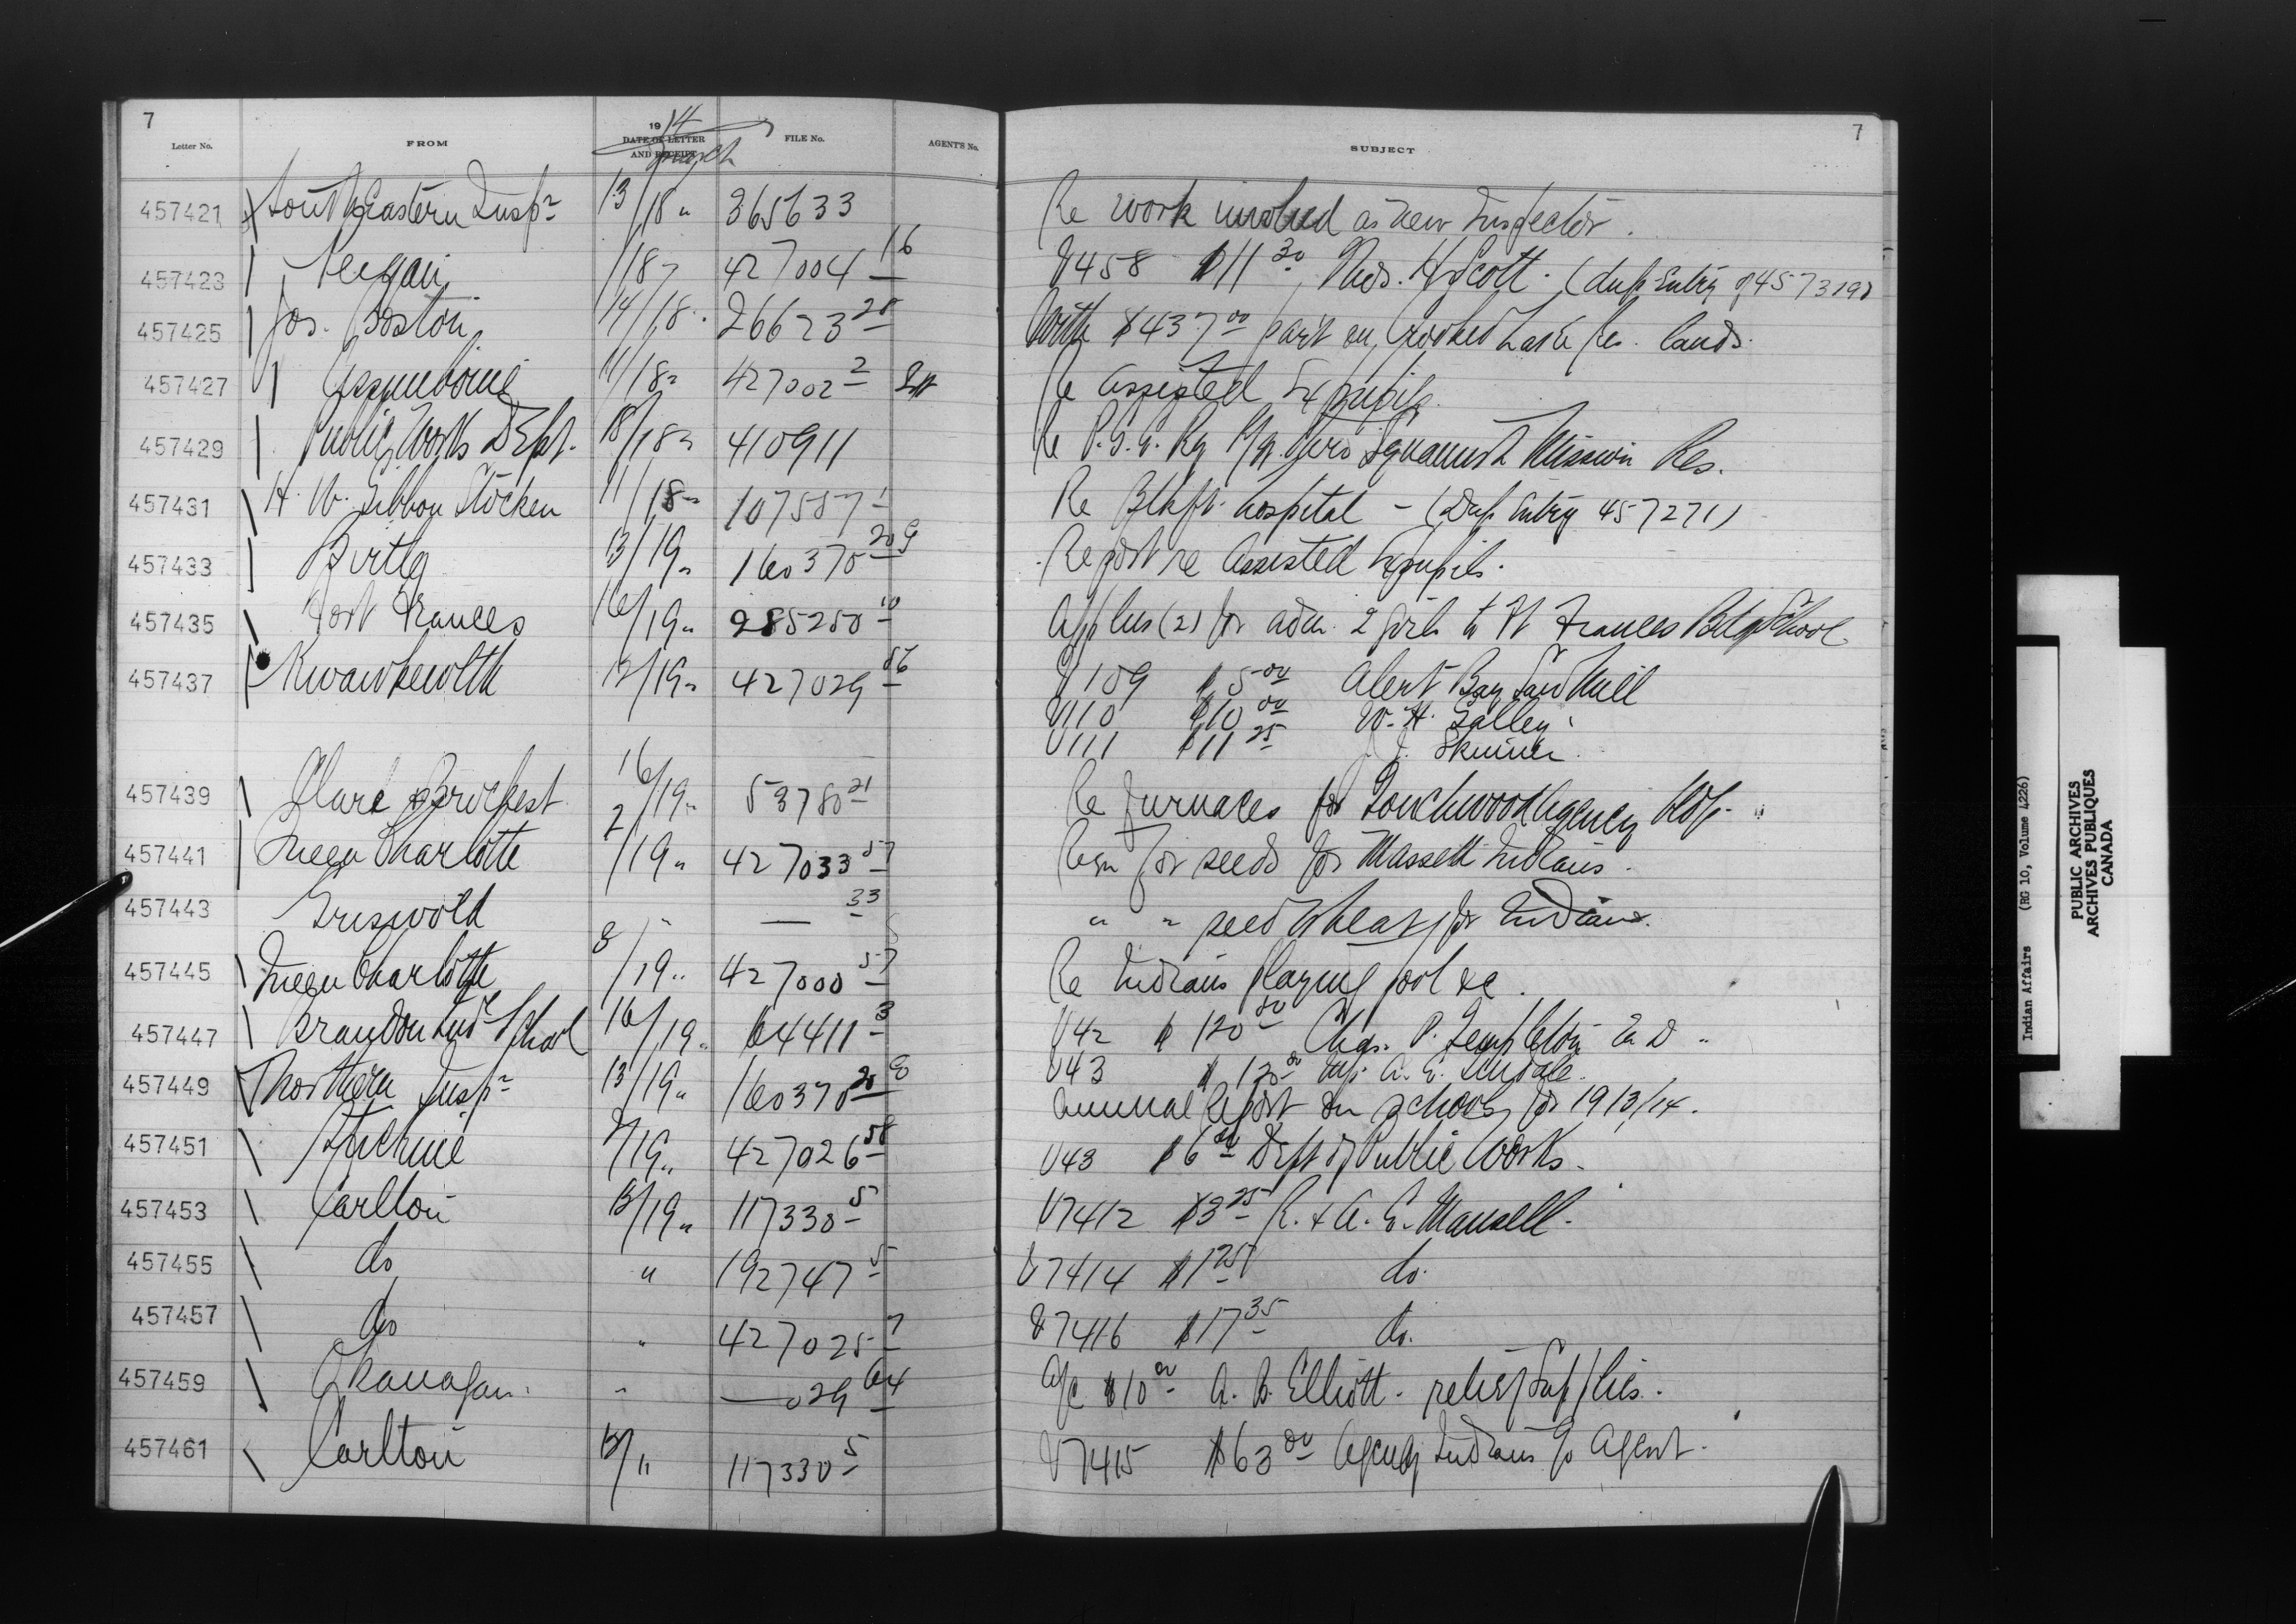 7
Letter No. FROM 1914 DATE OF LETTER AND RECEIPT March FILE No. AGENT'S No.
457421 South Eastern Insp^r 13/18 " 365633
457423 /18 427004 16
457425 Jos. Boston 14/18 26623 20
457427 Assiniboine 11/18 " 427002 2
457429 Public Works Dept. 18/18 " 410911
457431 H. W. Gibbon Stocken 11/18 " 107557 1
457433 Birtle 13/19 " 160370 20 9
457435 Fort Frances 16/19 " 285250 10
457437 Kwawkewlth 12/19 " 427029 56
457439 Clare & Brockest 16/19 " 53780 21
457441 Queen Charlotte 2/19 " 427033 57
457443 Griswold " — 33
457445 Queen Charlotte 8/19 " 427000 57
457447 Brandon Ind^l School 16/19 " 64411 3
457449 Northern Insp^r 13/19 " 160370 20 8
457451 Stickine 7/19 " 427026 58
457453 Carlton 13/19 " 117330 5
457455 do " 192747 5
457457 do " 427025 7
457459 Okanagan " — 029 64
457461 Carlton 13/ " 117330 5
7
SUBJECT
Re work involved as new Inspector.
V458 $11 30 Thos. H. Scott. (dup Entry of 457319)
With $437 00 part on Crooked Lake Res. lands.
Re assisted Ex pupils.
Re P.G.E. Ry R/W thro Squamish Mission Res.
Re Blkft. hospital - (Dup Entry 457271)
Report re assisted Ex pupils.
Applns (2) for adm. 2 girls to Ft Frances Bdg School.
V109 $5 00 Alert Bay Saw Mill
V110 $10 00 W. H. Galley.
V111 $11 25 J. Skinner.
Re furnaces for Touchwood Agency bldg.
Reqn for seeds for Massett Indians.
" " seed wheat for Indians.
Re Indians playing pool &c.
V42 $120 Chas. P. Templeton M D "
V43 $120 A. E.
Annual Report on schools for 1913/14.
V43 $6 Dept of Public Works.
V7412 $3 25 R. & A. C. Mansell.
V7414 $1 25 do.
V7416 $17 35 do.
A/c $10 00 A. B. Elliott. relief supplies.
V7415 $63 00 Agency Indians P/o Agent.
Indian Affairs (RG 10, Volume 4226)
PUBLIC ARCHIVES
ARCHIVES PUBLIQUES
CANADA